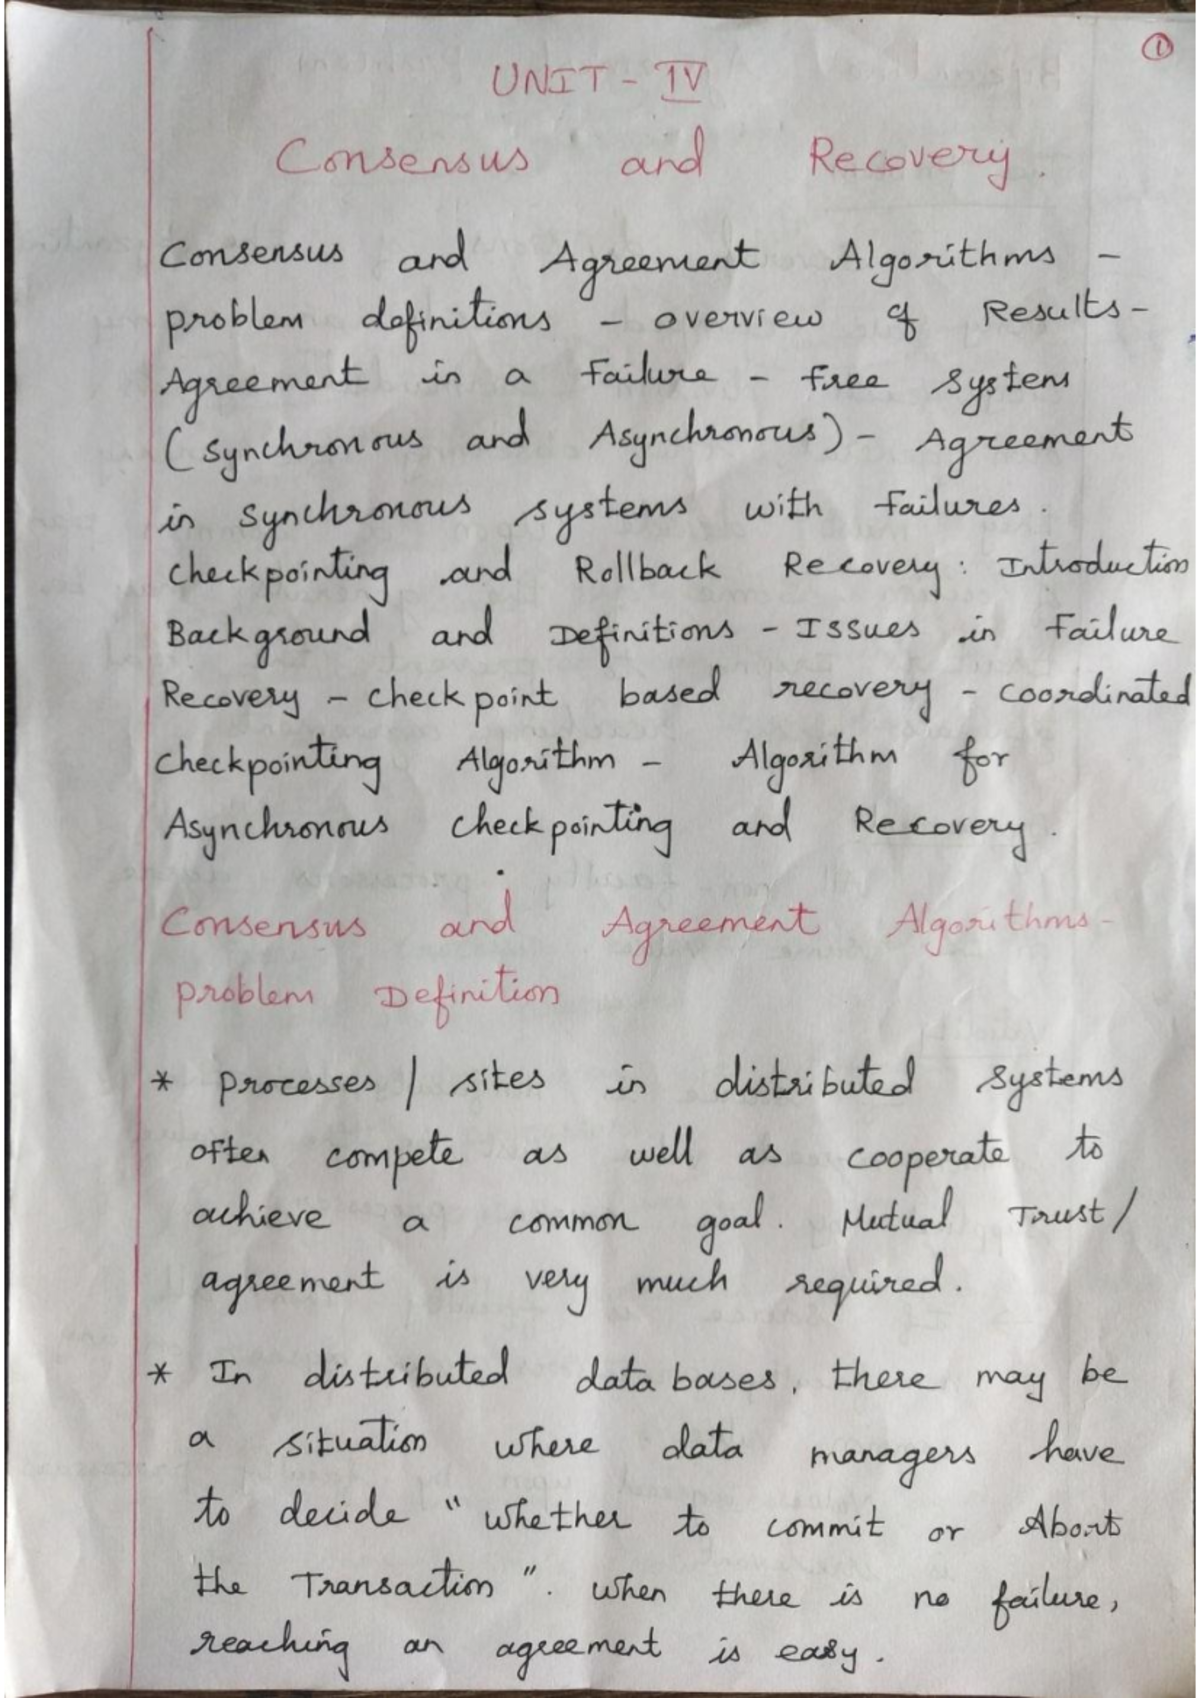 1
UNIT - IV
Consensus and Recovery.
Consensus and Agreement Algorithms -
problem definitions - overview of Results -
Agreement in a Failure - free system
(synchronous and Asynchronous) - Agreement
in synchronous systems with failures.
checkpointing and Rollback Recovery: Introduction
Background and Definitions - Issues in Failure
Recovery - checkpoint based recovery - coordinated
checkpointing Algorithm - Algorithm for
Asynchronous checkpointing and Recovery.
Consensus and Agreement Algorithms -
problem Definition
* processes / sites in distributed systems
often compete as well as cooperate to
achieve a common goal. Mutual Trust /
agreement is very much required.
* In distributed data bases, there may be
a situation where data managers have
to decide "whether to commit or Abort
the Transaction". when there is no failure,
reaching an agreement is easy.